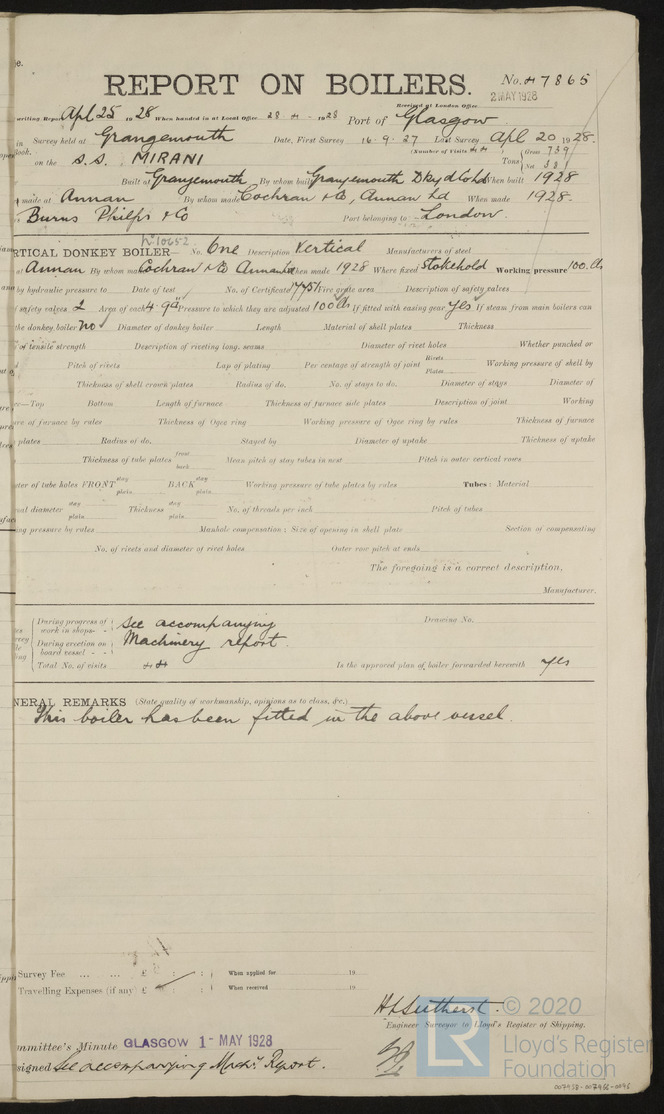 e.
REPORT ON BOILERS.
No. 47865
2 MAY 1928
Received at London Office
writing Report Apl 25 1928 When handed in at Local Office 28 4 - 1928 Port of Glasgow
in Survey held at Grangemouth Date, First Survey 16-9-27 Last Survey Apl 20 1928.
Book. (Number of Visits 44)
on the S.S. MIRANI Tons { Gross 739 Net 331
Built at Grangemouth By whom built Grangemouth Dkyd Co Ltd When built 1928
made at Annan By whom made Cochran & Co, Annan Ld When made 1928.
Burns Philps & Co Port belonging to London.
No 10652
RTICAL DONKEY BOILER— No. One Description Vertical Manufacturers of steel
at Annan By whom made Cochran & Co Annan Ld When made 1928 Where fixed Stokehold Working pressure 100 lbs
by hydraulic pressure to Date of test No. of Certificate 17751 Fire grate area Description of safety valves
f safety valves 2 Area of each 4.9" Pressure to which they are adjusted 100 lbs If fitted with easing gear yes If steam from main boilers can
the donkey boiler no Diameter of donkey boiler Length Material of shell plates Thickness
of tensile strength Description of riveting long. seams Diameter of rivet holes Whether punched or
Pitch of rivets Lap of plating Per centage of strength of joint Rivets Plates Working pressure of shell by
Thickness of shell crown plates Radius of do. No. of stays to do. Diameter of stays Diameter of
ce—Top Bottom Length of furnace Thickness of furnace side plates Description of joint Working
ure of furnace by rules Thickness of Ogee ring Working pressure of Ogee ring by rules Thickness of furnace
plates Radius of do. Stayed by Diameter of uptake Thickness of uptake
Thickness of tube plates front back Mean pitch of stay tubes in nest Pitch in outer vertical rows
eter of tube holes FRONT stay plain BACK stay plain Working pressure of tube plates by rules Tubes: Material
nal diameter stay plain Thickness stay plain No. of threads per inch Pitch of tubes
ing pressure by rules Manhole compensation: Size of opening in shell plate Section of compensating
No. of rivets and diameter of rivet holes Outer row pitch at ends
The foregoing is a correct description,
Manufacturer.
During progress of work in shops - - See accompanying Drawing No.
During erection on board vessel - - Machinery report.
Total No. of visits 44 Is the approved plan of boiler forwarded herewith yes
NERAL REMARKS (State quality of workmanship, opinions as to class, &c.)
This boiler has been fitted in the above vessel.
Survey Fee ... ... £ : : When applied for 19
Travelling Expenses (if any) £ : : When received 19
Engineer Surveyor to Lloyd's Register of Shipping.
mmittee's Minute GLASGOW 1- MAY 1928
signed See accompanying Machy. Report.
© 2020
LR
Lloyd's Register
Foundation
007958-007966-0095